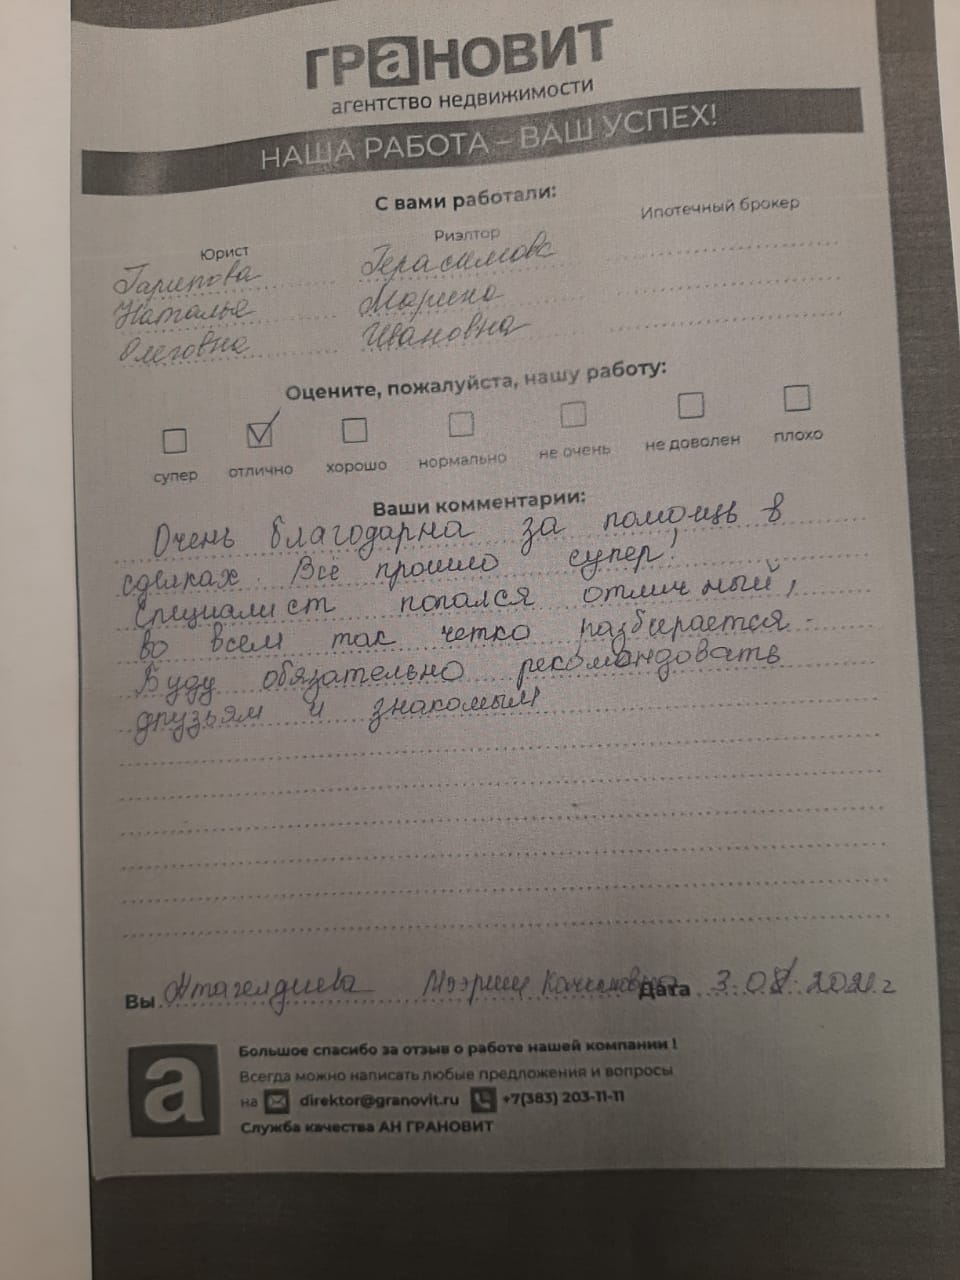 ГРаНОВИТ
агентство недвижимости
НАША РАБОТА – ВАШ УСПЕХ!
С вами работали:
Юрист Риэлтор Ипотечный брокер
Гарипова Герасимова
Наталья Марина
Олеговна Ивановна
Оцените, пожалуйста, нашу работу:
супер отлично хорошо нормально не очень не доволен плохо
Ваши комментарии:
Очень благодарна за помощь в
сделках. Все прошло супер!
Специалист попался отличный,
во всем так четко разбирается.
Буду обязательно рекомендовать
друзьям и знакомым
Вы Дата 3.08.2021 г
а
Большое спасибо за отзыв о работе нашей компании !
Всегда можно написать любые предложения и вопросы
на direktor@granovit.ru +7(383) 203-11-11
Служба качества АН ГРАНОВИТ